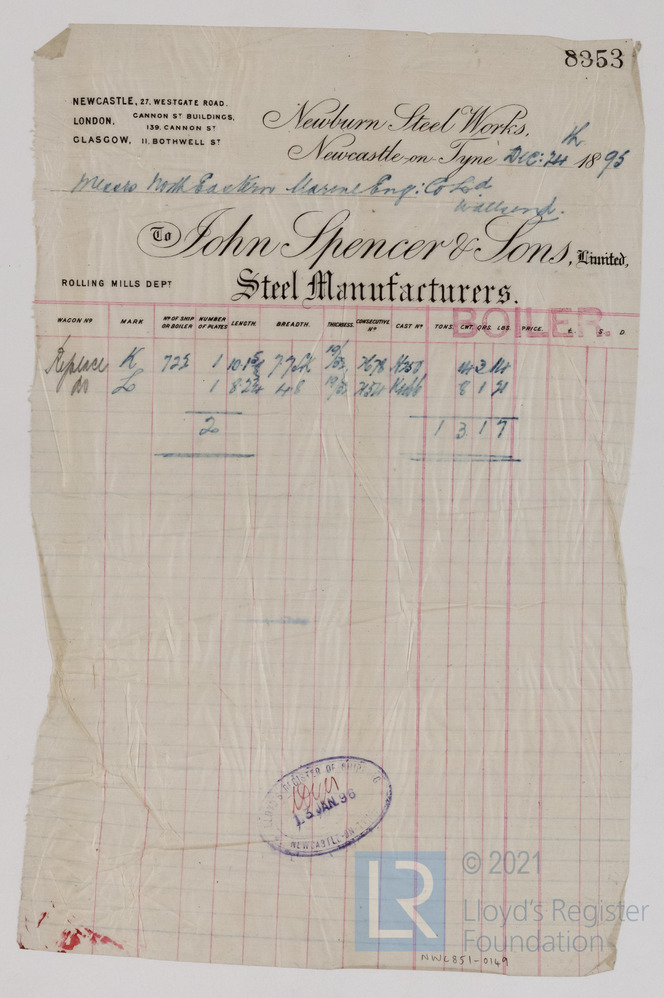 8353
NEWCASTLE, 27, WESTGATE ROAD.
LONDON, CANNON ST BUILDINGS, 139, CANNON ST
GLASGOW, 11, BOTHWELL ST
Newburn Steel Works,
Newcastle-on-Tyne Dec: 24th 1895
Messrs North Eastern Marine Eng: Co Ltd
Wallsend.
To John Spencer & Sons, Limited,
ROLLING MILLS DEPT Steel Manufacturers.
BOILER.
WAGON No MARK No OF SHIP OR BOILER NUMBER OF PLATES LENGTH. BREADTH. THICKNESS. CONSECUTIVE No CAST No TONS. CWT. QRS. LBS. PRICE. £. S. D
Replace K 722 1
do L 1 48 8 1
2 1 3 1 7
LLOYD'S REGISTER OF SHIPPING
13 JAN 96
NEWCASTLE-ON-
LR © 2021
Lloyd's Register
Foundation
NWL851-0149